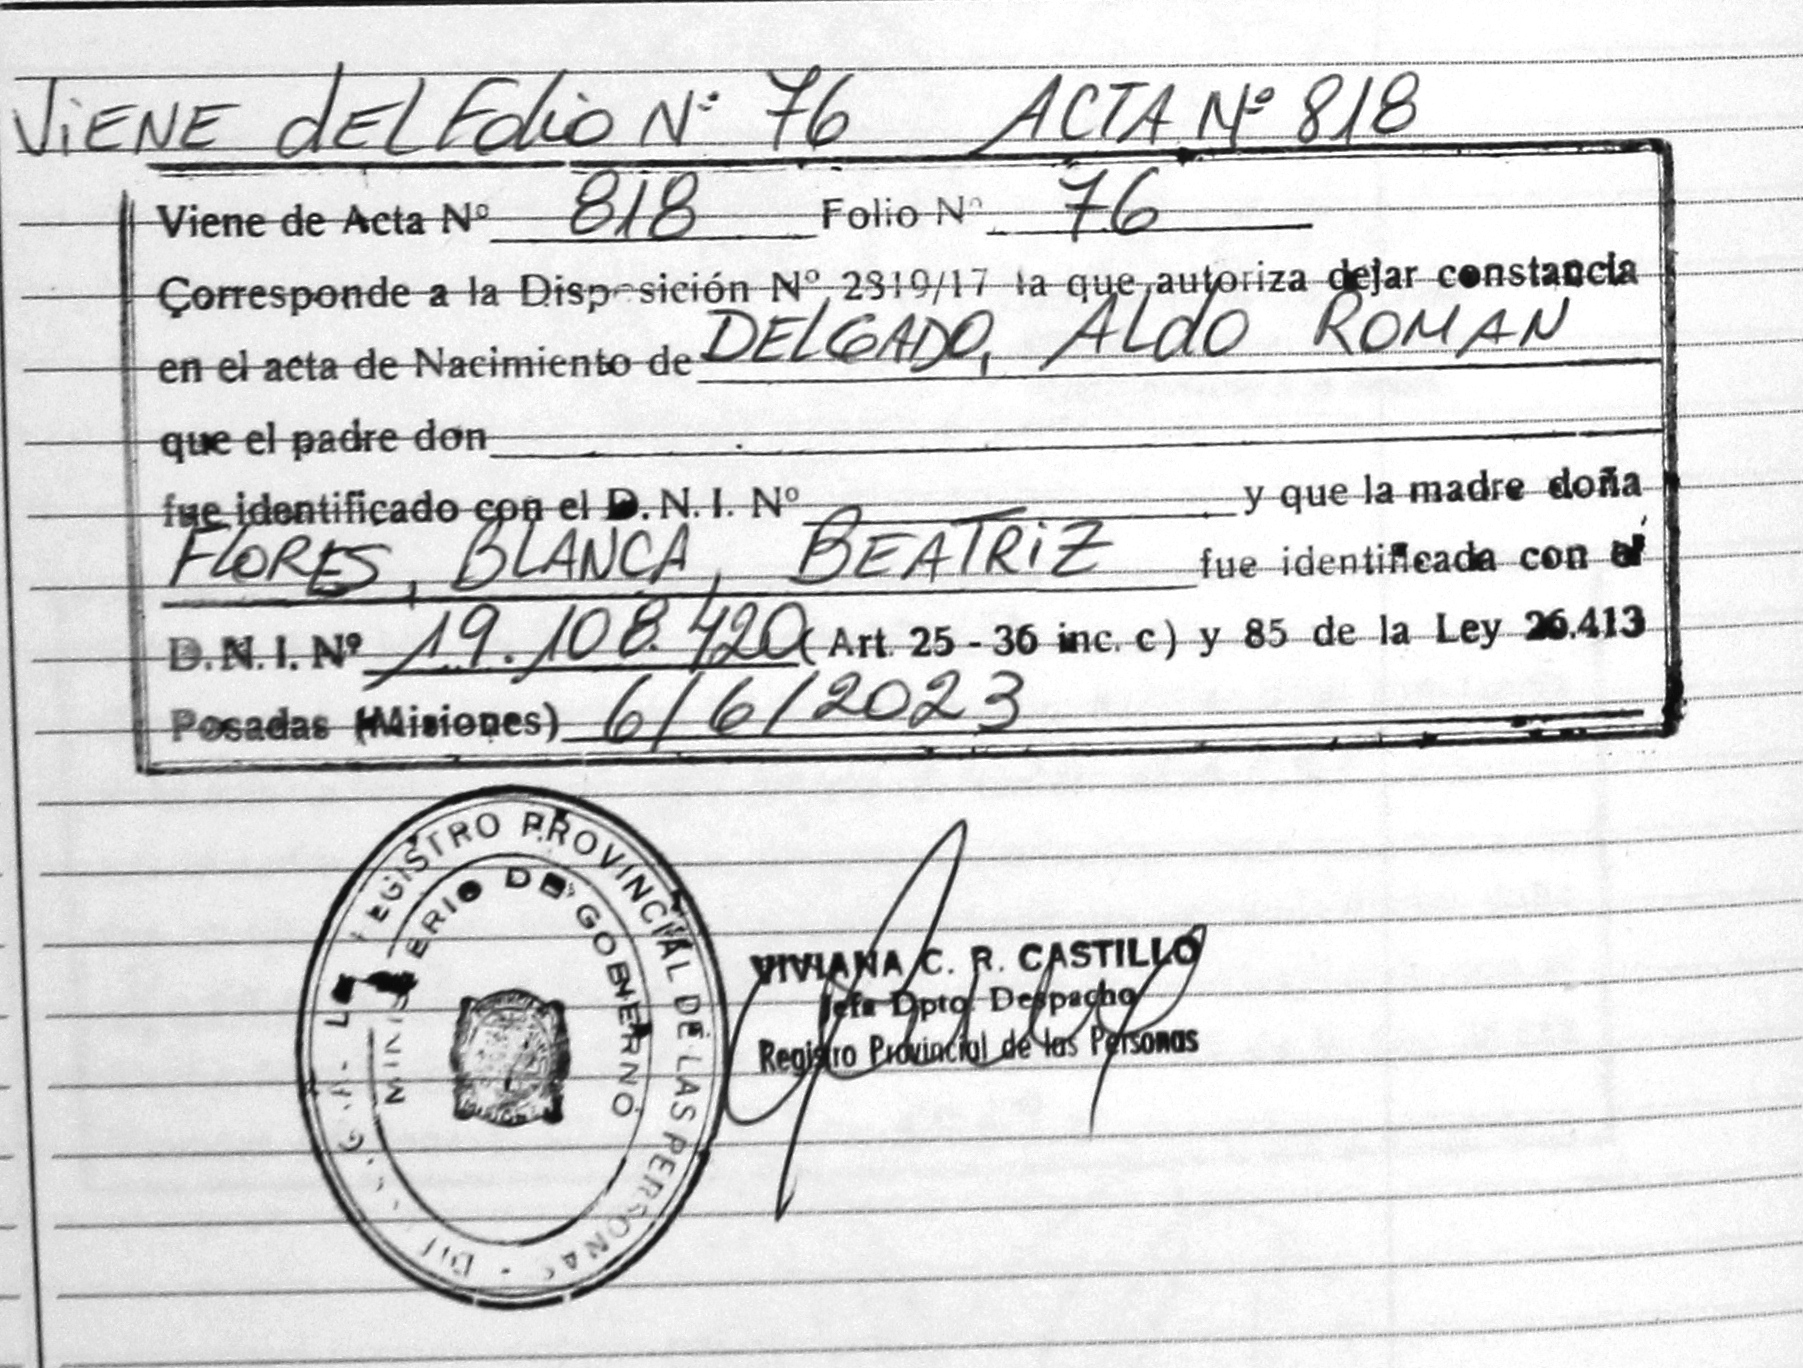 ViENE dEL Folio Nº 76 ACTA Nº 818
Viene de Acta Nº 818 Folio Nº 76
Corresponde a la Disposición Nº 2819/17 la que autoriza dejar constancia
en el acta de Nacimiento de DELGADO, ALdO ROMAN
que el padre don
fue identificado con el D.N.I. Nº y que la madre doña
FLORES, BLANCA, BEATRiZ fue identificada con el
D.N.I. Nº 19.108.420 (Art. 25 - 36 inc. c) y 85 de la Ley 26.413
Posadas (Misiones) 6/6/2023
REGISTRO PROVINCIAL DE LAS PERSONAS
MINISTERIO DE GOBIERNO
VIVIANA C. R. CASTILLO
Jefa Dpto. Despacho
Registro Provincial de las Personas